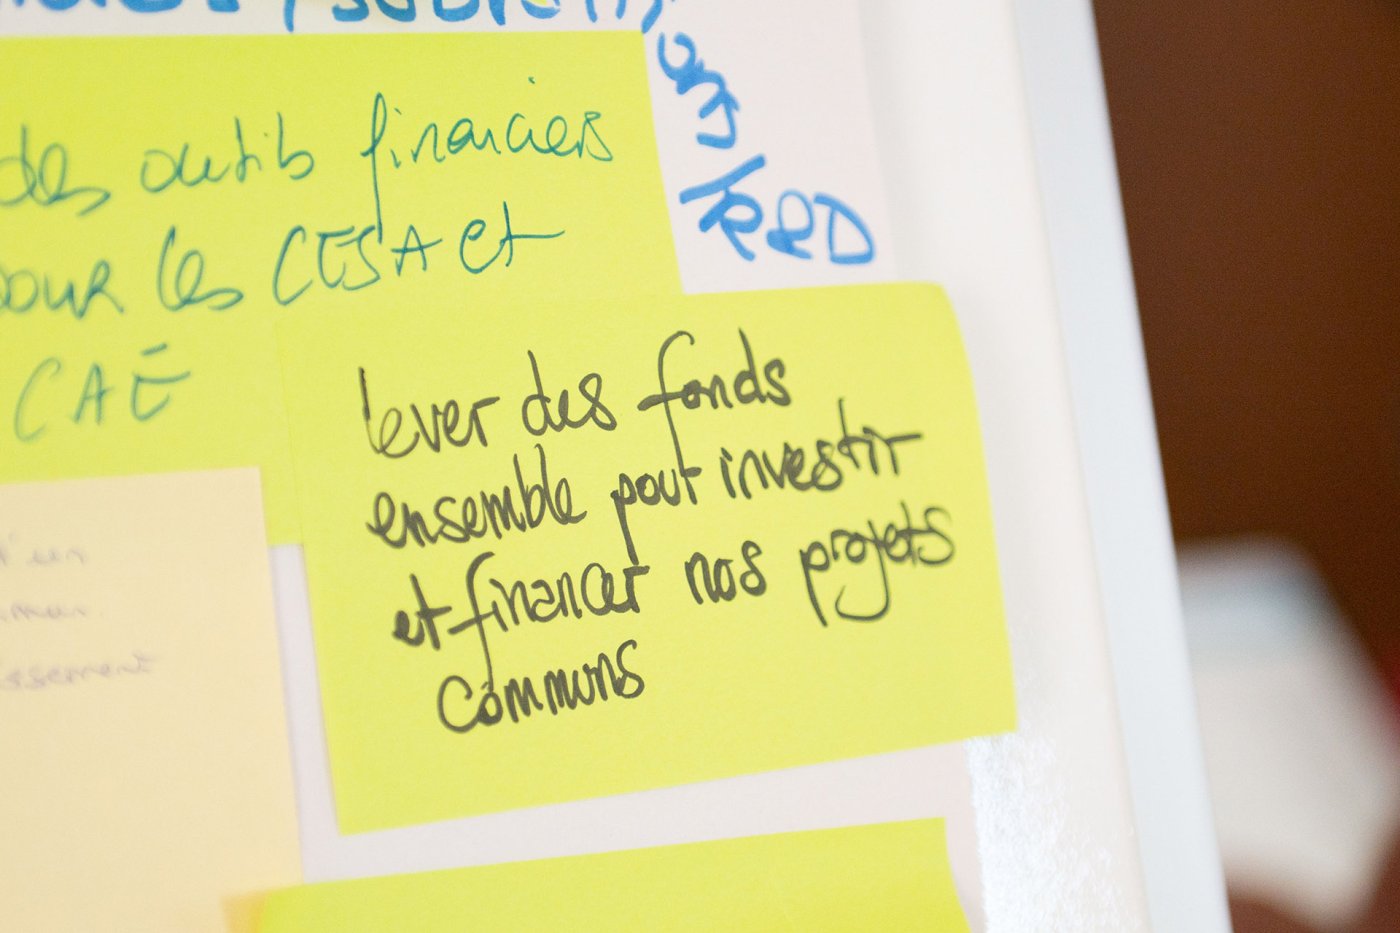 des outils financiers
pour les CESA et
CAE
ons/R&D
lever des fonds
ensemble pour investir
et financer nos projets
communs